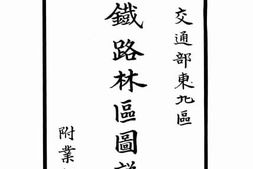 交通部東九區
鐵路林區圖說
附業